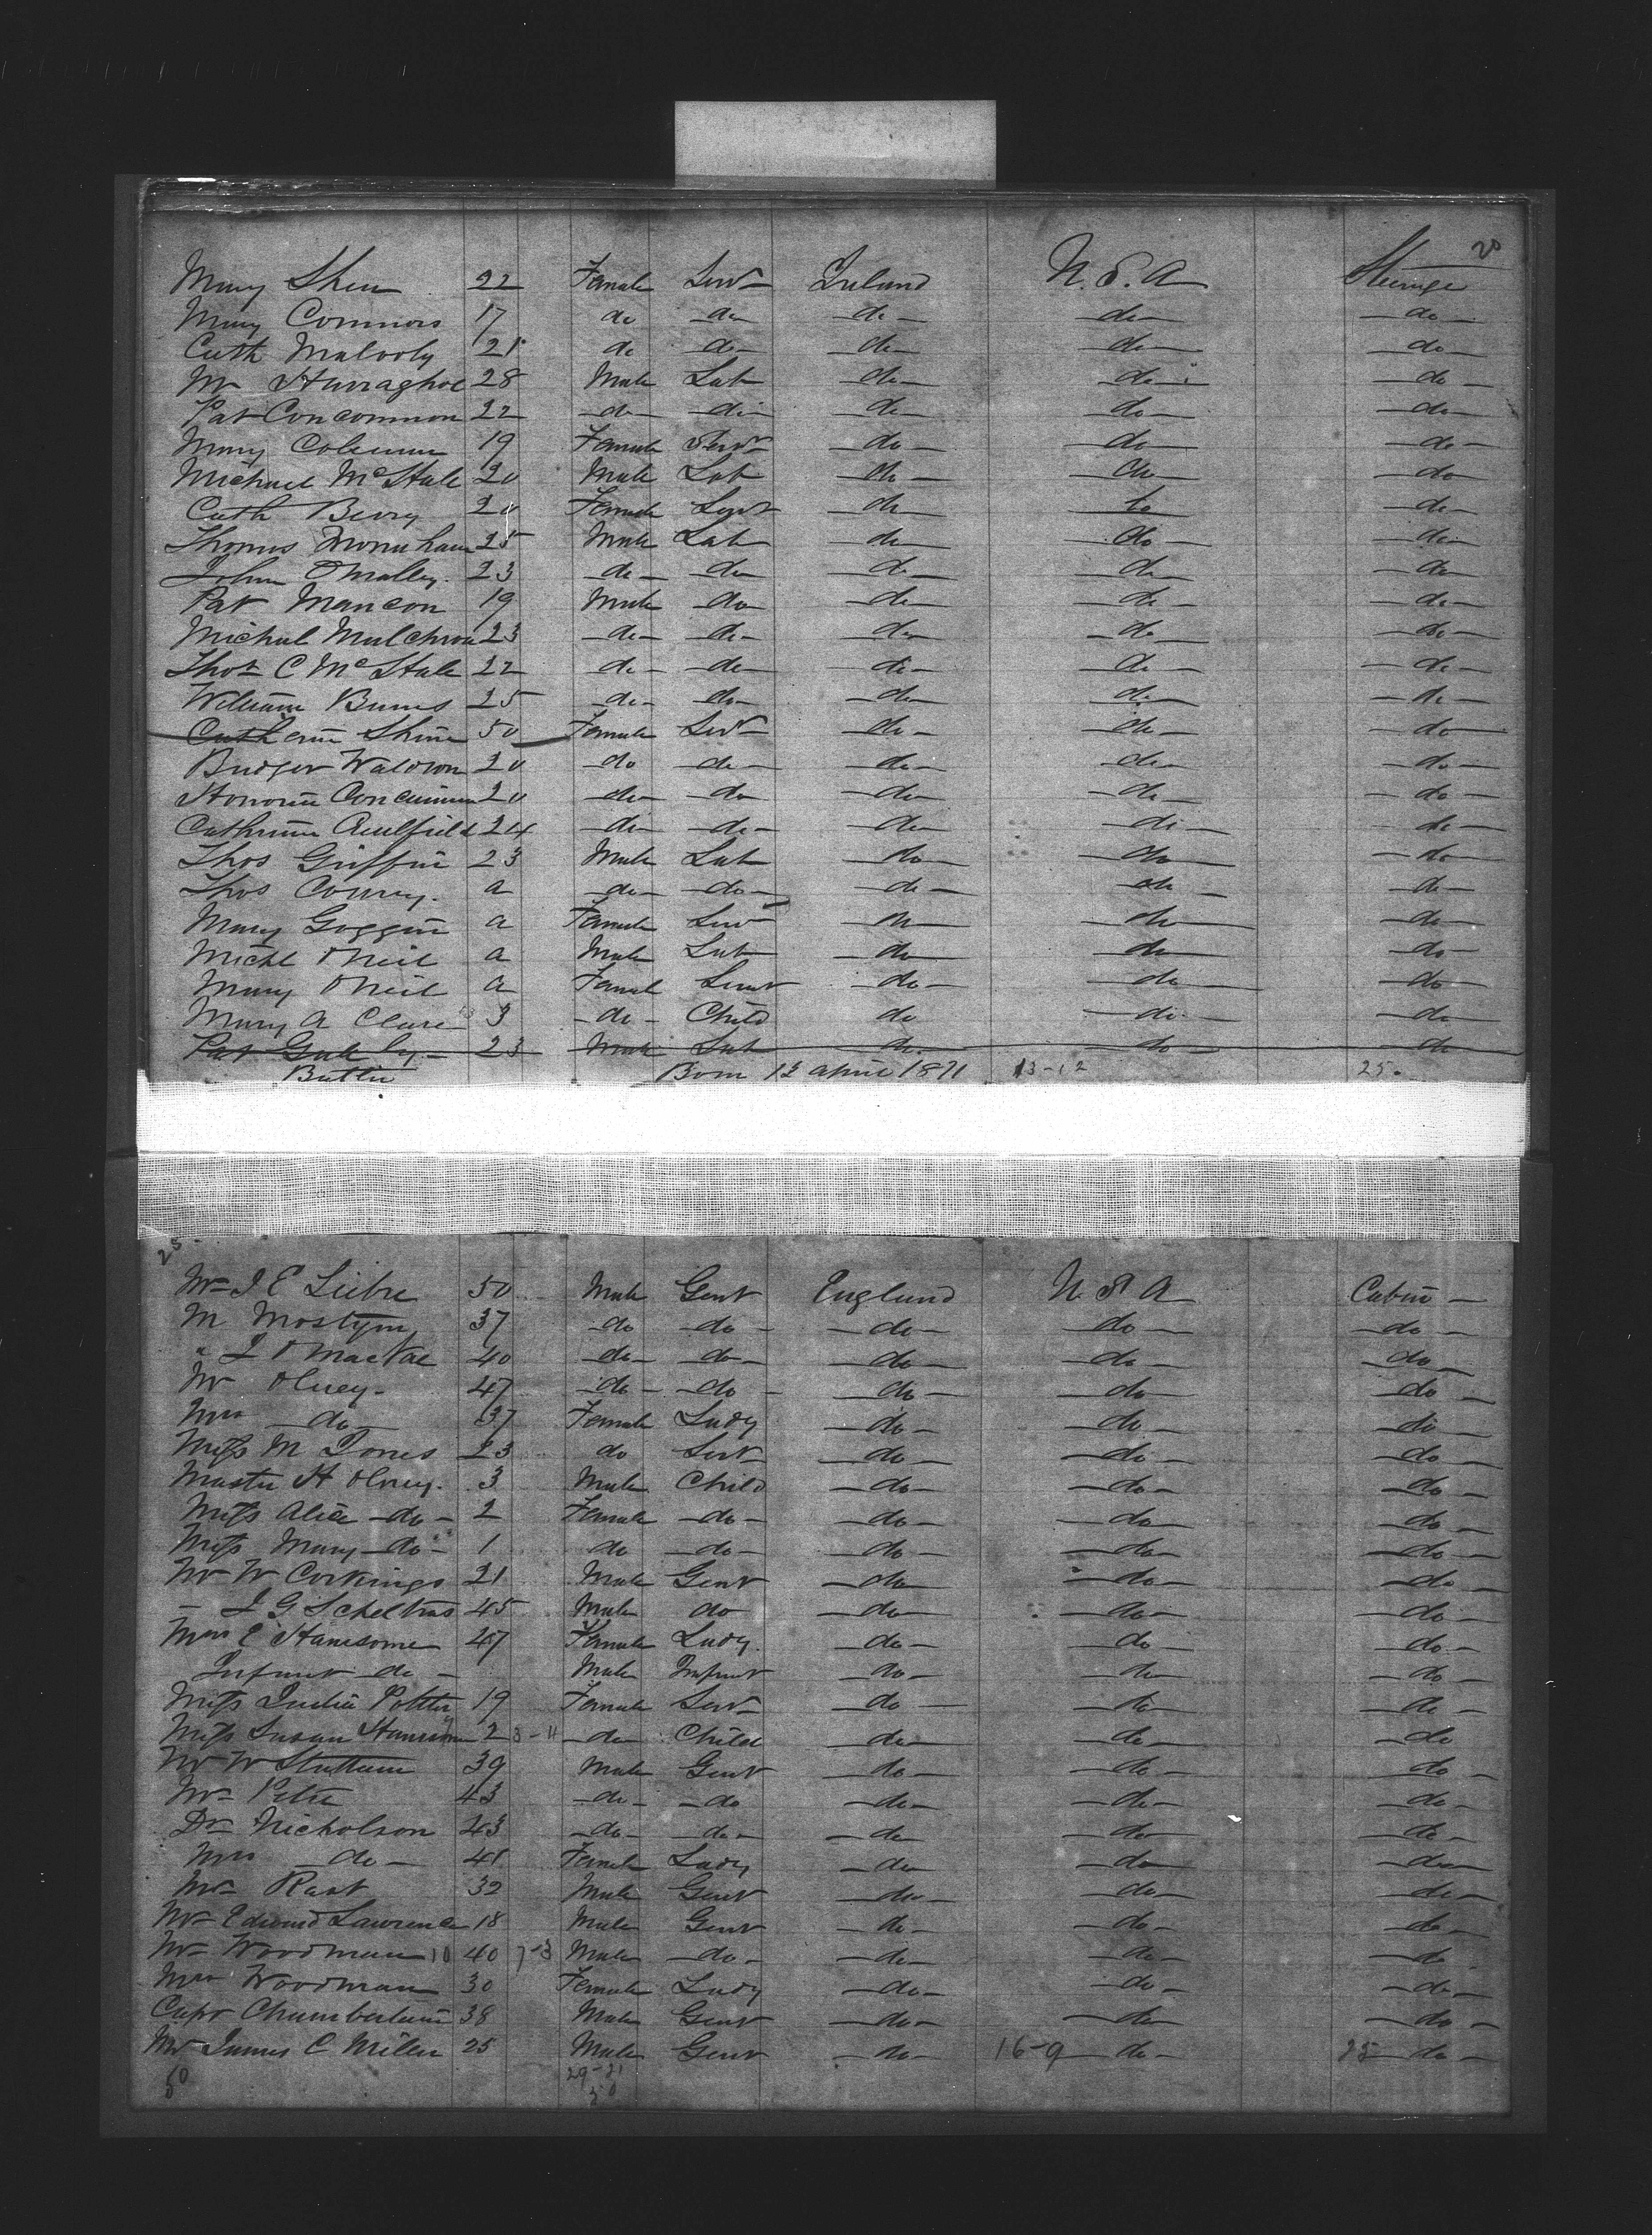 20
Mary Shea 22 Female Servt Ireland U.S.A Steerage
Mary Connors 17 do do do do do
Cath Malooly 21 do do do do do
Mr Harraghoe 28 Male Lab do do do
Pat Concommon 22 do do do do do
Mary Coleman 19 Female Servt do do do
Michael McHale 20 Male Lab do do do
Cath Berry 20 Female Servt do do do
Thomas Monuhan 25 Male Lab do do do
John OMalley 23 do do do do do
Pat Mancon 19 Male do do do do
Michael Mulchron 23 do do do do do
Thos C McHale 22 do do do do do
William Burns 25 do do do do do
Catherine Shine 50 Female Servt do do do
Bridget Waldron 20 do do do do do
Honoria Concannon 20 do do do do do
Catherine Caulfield 24 do do do do do
Thos Griffin 23 Male Lab do do do
Thos Conrey a do do do do do
Mary Goggin a Female Servt do do do
Michl ONeil a Male Lab do do do
Mary ONeil a Female Servt do do do
Mary A Clare 3 do Child do do do
Pat 23 Male Lab do do do
Butler Born 12 April 1871 13-12 25
25
Mr J E Liebre 50 Male Gent England U S A Cabin
M Mostyn 37 do do do do do
" J MacVae 40 do do do do do
Mr Olney 47 do do do do do
Mrs do 37 Female Lady do do do
Miss M Jones 23 do Servt do do do
Master H Olney 3 Male Child do do do
Miss Alice do 2 Female do do do do
Miss Mary do 1 do do do do do
Mr W Corkings 21 Male Gent do do do
J G Scheltus 45 Male do do do do
Mrs E Hansome 47 Female Lady do do do
Infant do Male Infant do do do
Miss Julia Potter 19 Female Servt do do do
Miss Susan Hansom 2 3-11 do Child do do do
Mr W Stattam 39 Male Gent do do do
Mr Petre 43 do do do do do
Dr Nicholson 43 do do do do do
Mrs do 41 Female Lady do do do
Mr Rast 32 Male Gent do do do
Mr Edward Lawrence 18 Male Gent do do do
Mr Woodman 10 40 7-3 Male do do do do
Mrs Woodman 30 Female Lady do do do
Capt Chamberlain 38 Male Gent do do do
Mr James C Miller 25 Male Gent do 16-9 do 25 do
50 29-21
50